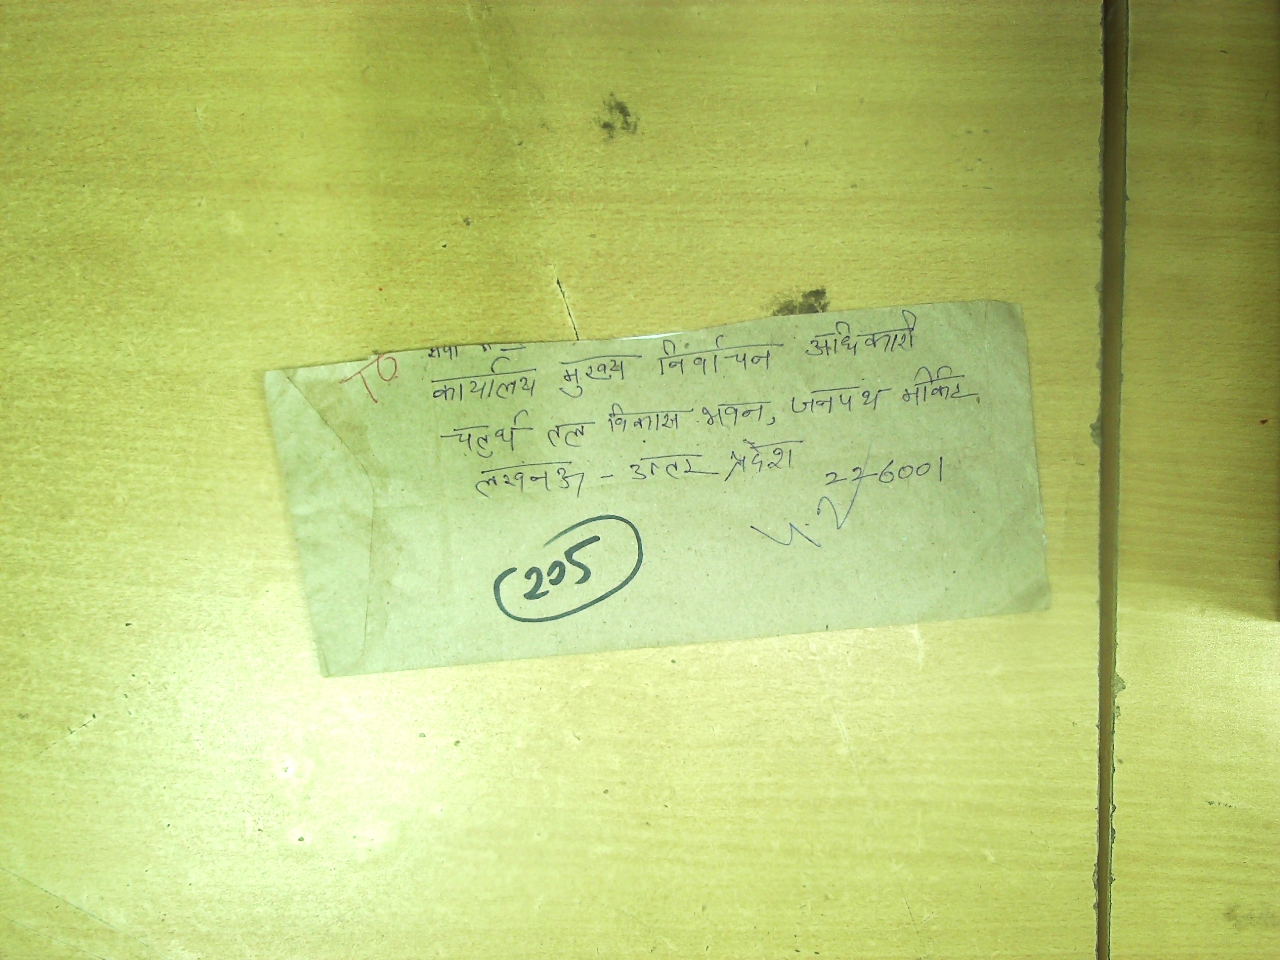 TO
सेवा में
कार्यालय मुख्य निर्वाचन अधिकारी
चतुर्थ तल विकास भवन, जनपथ मार्केट,
लखनऊ - उत्तर प्रदेश
226001
U.P
225